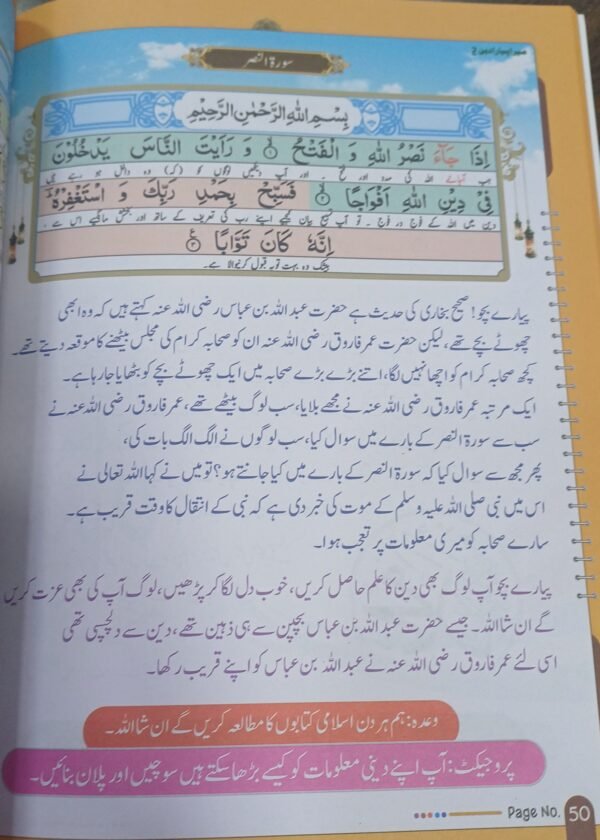 میرا پیارا دین 2
سورۃ النصر
بِسْمِ اللهِ الرَّحْمٰنِ الرَّحِيْمِ
اِذَا جَآءَ نَصْرُ اللهِ وَ الْفَتْحُ ۙ﴿۱﴾ وَ رَاَيْتَ النَّاسَ يَدْخُلُوْنَ
جب آجائے اللہ کی مدد اور فتح ۔ اور آپ دیکھیں لوگوں کو (کہ) وہ داخل ہو رہے ہیں
فِيْ دِيْنِ اللهِ اَفْوَاجًا ۙ﴿۲﴾ فَسَبِّحْ بِحَمْدِ رَبِّكَ وَ اسْتَغْفِرْهُ ؕ
دین میں اللہ کے فوج در فوج ۔ تو آپ تسبیح بیان کیجیے اپنے رب کی تعریف کے ساتھ اور بخشش مانگیے اس سے ۔
اِنَّهٗ كَانَ تَوَّابًا ﴿۳﴾ ع
بیشک وہ بہت توبہ قبول کرنیوالا ہے۔
پیارے بچو! صحیح بخاری کی حدیث ہے حضرت عبداللہ بن عباس رضی اللہ عنہ کہتے ہیں کہ وہ ابھی
چھوٹے بچے تھے، لیکن حضرت عمر فاروق رضی اللہ عنہ ان کو صحابہ کرام کی مجلس بیٹھنے کا موقعہ دیتے تھے۔
کچھ صحابہ کرام کو اچھا نہیں لگا، اتنے بڑے بڑے صحابہ میں ایک چھوٹے بچے کو بٹھایا جا رہا ہے۔
ایک مرتبہ عمر فاروق رضی اللہ عنہ نے مجھے بلایا، سب لوگ بیٹھے تھے، عمر فاروق رضی اللہ عنہ نے
سب سے سورۃ النصر کے بارے میں سوال کیا، سب لوگوں نے الگ الگ بات کی،
پھر مجھ سے سوال کیا کہ سورۃ النصر کے بارے میں کیا جانتے ہو؟ تو میں نے کہا اللہ تعالی نے
اس میں نبی صلی اللہ علیہ وسلم کے موت کی خبر دی ہے کہ نبی کے انتقال کا وقت قریب ہے۔
سارے صحابہ کو میری معلومات پر تعجب ہوا۔
پیارے بچو آپ لوگ بھی دین کا علم حاصل کریں، خوب دل لگا کر پڑھیں، لوگ آپ کی بھی عزت کریں
گے ان شا اللہ۔ جیسے حضرت عبداللہ بن عباس بچپن سے ہی ذہین تھے، دین سے دلچسپی تھی
اسی لئے عمر فاروق رضی اللہ عنہ نے عبداللہ بن عباس کو اپنے قریب رکھا۔
وعدہ: ہم ہر دن اسلامی کتابوں کا مطالعہ کریں گے ان شا اللہ۔
پروجیکٹ: آپ اپنے دینی معلومات کو کیسے بڑھا سکتے ہیں سوچیں اور پلان بنائیں۔
Page No. 50